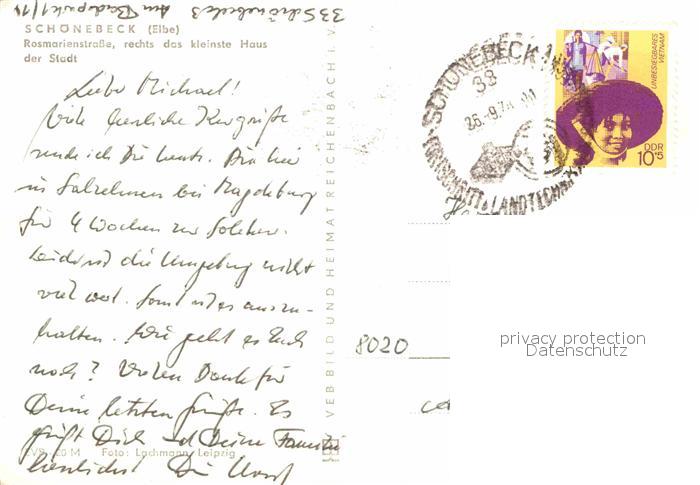 SCHÖNEBECK (Elbe)
Rosmarienstraße, rechts das kleinste Haus
der Stadt
Lieber Michael!
Viele herzliche Kurgrüße
sende ich Dir heute. Bin hier
in Salzelmen bei Magdeburg
für 4 Wochen zur Solekur.
Leider ist die Umgebung nicht
viel wert. Sonst ist es auszu-
halten. Wie geht es Euch
noch? Vielen Dank für
Deine letzten Grüße. Es
grüßt Dich und Deine Familie
herzlichst Dein Horst
M Foto: Lachmann, Leipzig
VEB BILD UND HEIMAT REICHENBACH i. V.
SCHÖNEBECK
33
26.-9.72
FORTSCHRITT LANDTECHNIK
UNBESIEGBARES
VIETNAM
DDR
10+5
8020
privacy protection
Datenschutz